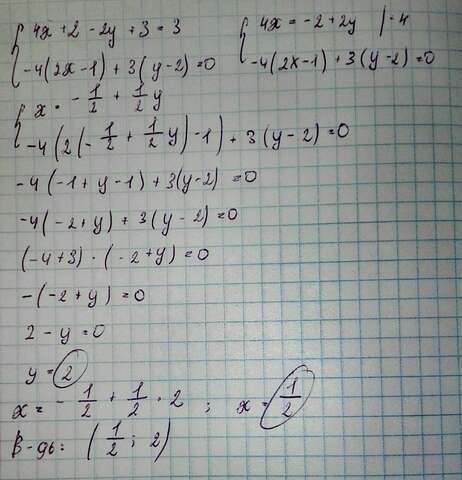 4x + 2 - 2y + 3 = 3
-4(2x - 1) + 3(y - 2) = 0
4x = -2 + 2y | : 4
-4(2x - 1) + 3(y - 2) = 0
x = -1/2 + 1/2 y
-4(2(-1/2 + 1/2 y) - 1) + 3(y - 2) = 0
-4(-1 + y - 1) + 3(y - 2) = 0
-4(-2 + y) + 3(y - 2) = 0
(-4 + 3) · (-2 + y) = 0
-(-2 + y) = 0
2 - y = 0
y = 2
x = -1/2 + 1/2 · 2 ; x = 1/2
В-дь: (1/2; 2)